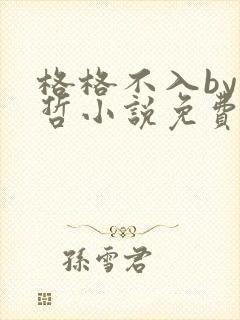 格格不入by
哲小說免費
孫雪君